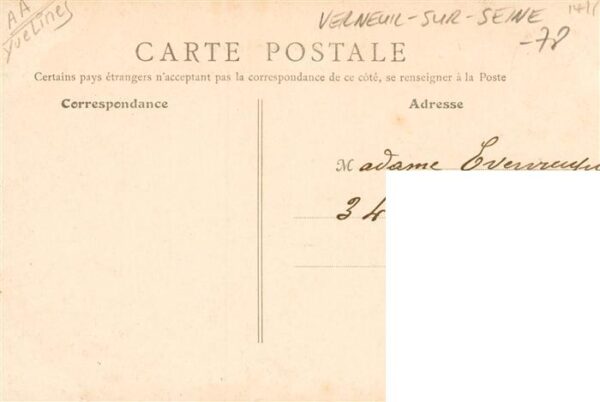 AA
Yvelines
VERNEUIL-SUR-SEINE
-78
CARTE POSTALE
Certains pays étrangers n'acceptent pas la correspondance de ce côté, se renseigner à la Poste
Correspondance
Adresse
Madame
34